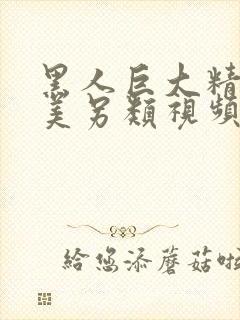 黑人巨大精
美另類視頻
給您添蘑菇啦